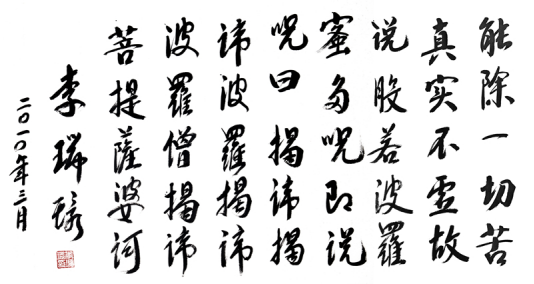 能除一切苦
真实不虚故
说般若波羅
蜜多呪即说
呪曰揭谛揭
谛波羅揭谛
波羅僧揭谛
菩提薩婆诃
李瑞
二〇一〇年三月